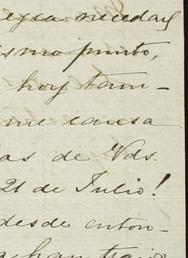 esa necedad
ismo punto,
hoy tam-
me causa
as de Vds.
21 de Julio!
desde enton-